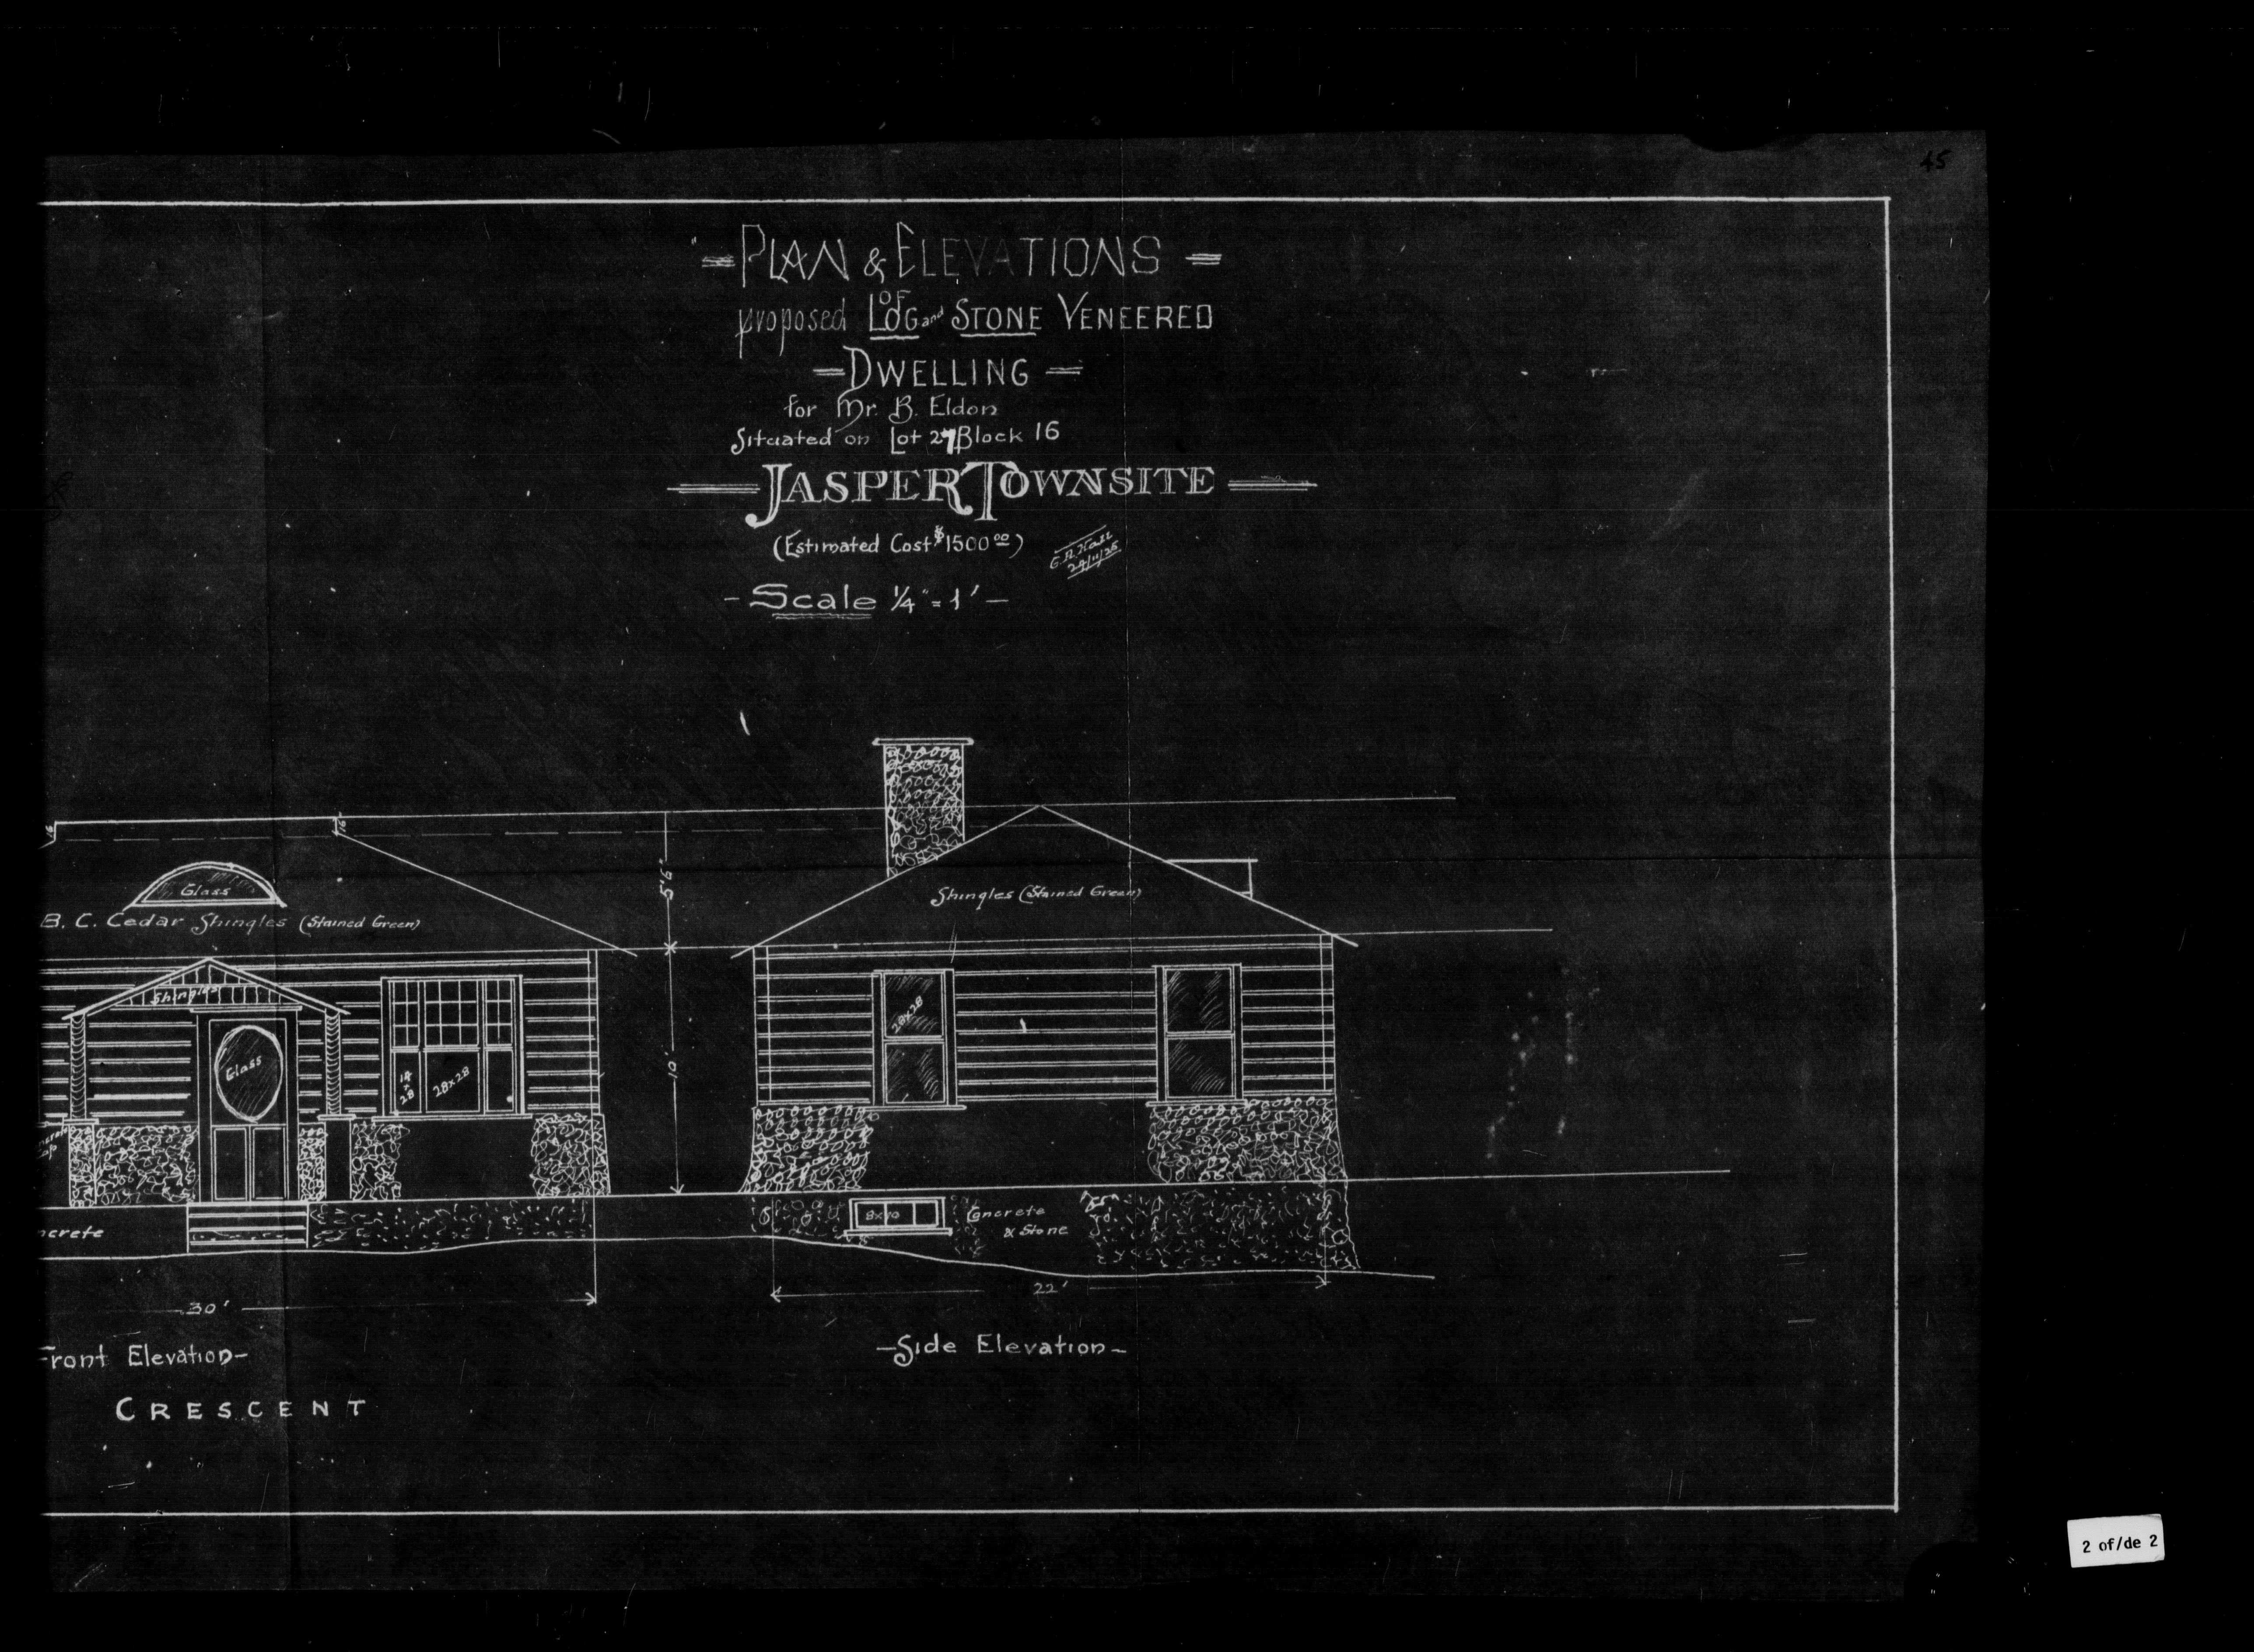 45
"PLAN & ELEVATIONS
OF
proposed LOG and STONE VENEERED
DWELLING
for Mr. B. Eldon
Situated on Lot 27 Block 16
JASPER TOWNSITE
(Estimated Cost $1500 00)
29/11/25
- Scale 1/4" = 1' -
16"
Glass
B. C. Cedar Shingles (Stained Green)
Shingles (Stained Green)
5'6"
Shingles
Glass
14 x 28
28x28
28x28
10'
8x10
Concrete
& Stone
ncrete
30'
22'
Front Elevation-
-Side Elevation-
CRESCENT
2 of/de 2